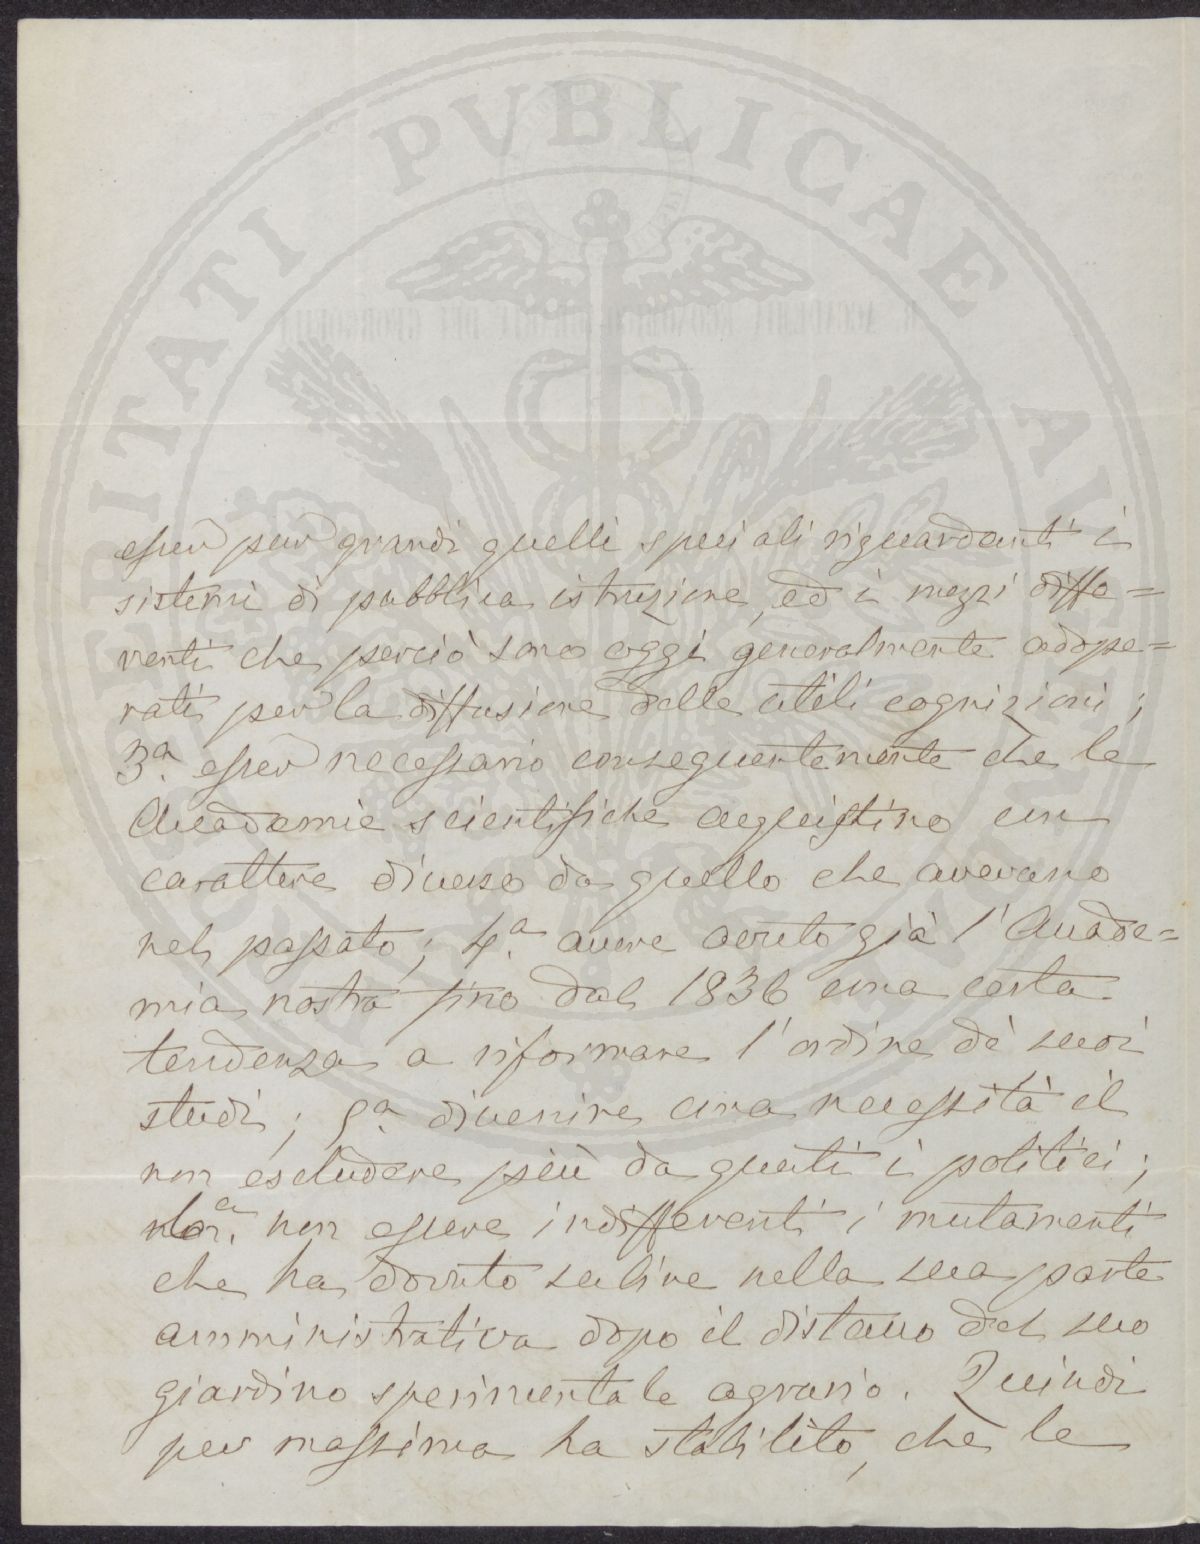 PROSPERITATI PVBLICAE AVGENDAE
R. ACCADEMIA ECONOMICO-AGRARIA DEI GEORGOFILI
esser pur grandi quelli speciali riguardanti i
sistemi di pubblica istruzione, ed i mezzi diffe=
renti che perciò sono oggi generalmente adope=
rati per la diffusione delle utili cognizioni;
3.a esser necessario conseguentemente che le
Accademie scientifiche acquistino un
carattere diverso da quello che avevano
nel passato; 4.a avere avuto già l'Accade=
mia nostra fino dal 1836 una certa
tendenza a riformare l'ordine de' suoi
studi; 5.a divenire una necessità il
non escludere più da questi i politici;
6.a non essere indifferenti i mutamenti
che ha dovuto subire nella sua parte
amministrativa dopo il distacco del suo
giardino sperimentale agrario. Quindi
per massima ha stabilito, che le